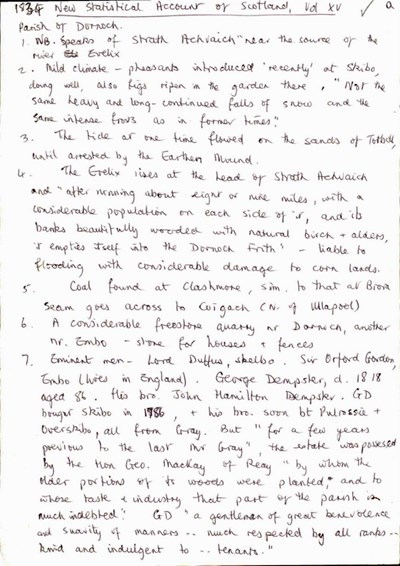 1834 New Statistical Account of Scotland, Vol XV ✓ a
Parish of Dornoch.
1. NB. Speaks of Strath Achvaich "near the source of the
river Evelix
2. Mild climate – pheasants introduced 'recently' at Skibo,
doing well, also figs ripen in the garden there, "Not the
same heavy and long-continued falls of snow and the
same intense frosts as in former times."
3. The tide at one time flowed on the sands of
until arrested by the Earthen Mound.
4. The Evelix rises at the head of Strath Achvaich
and "after running about eight or nine miles, with a
considerable population on each side of it, and its
banks beautifully wooded with natural birch + alders,
it empties itself into the Dornoch Frith" – liable to
flooding with considerable damage to corn lands.
5. Coal found at Clashmore, sim. to that at Brora
Seam goes across to Coigach (N. of Ullapool)
6. A considerable freestone quarry nr Dornoch, another
nr. Embo – stone for houses + fences
7. Eminent men – Lord Duffus, Skelbo. Sir Orford Gordon,
Embo (lives in England). George Dempster, d. 1818
aged 86. His bro. John Hamilton Dempster. GD
bought Skibo in 1786, + his bro. soon bt Pulrossie +
Overskibo, all from Gray. But "for a few years
previous to the last Mr Gray", the estate was possessed
by the Hon Geo. Mackay of Reay "by whom the
older portions of its woods were planted," and to
whose taste + industry that part of the parish is
much indebted." GD "a gentleman of great benevolence
and suavity of manners -- much respected by all ranks --
kind and indulgent to -- tenants."